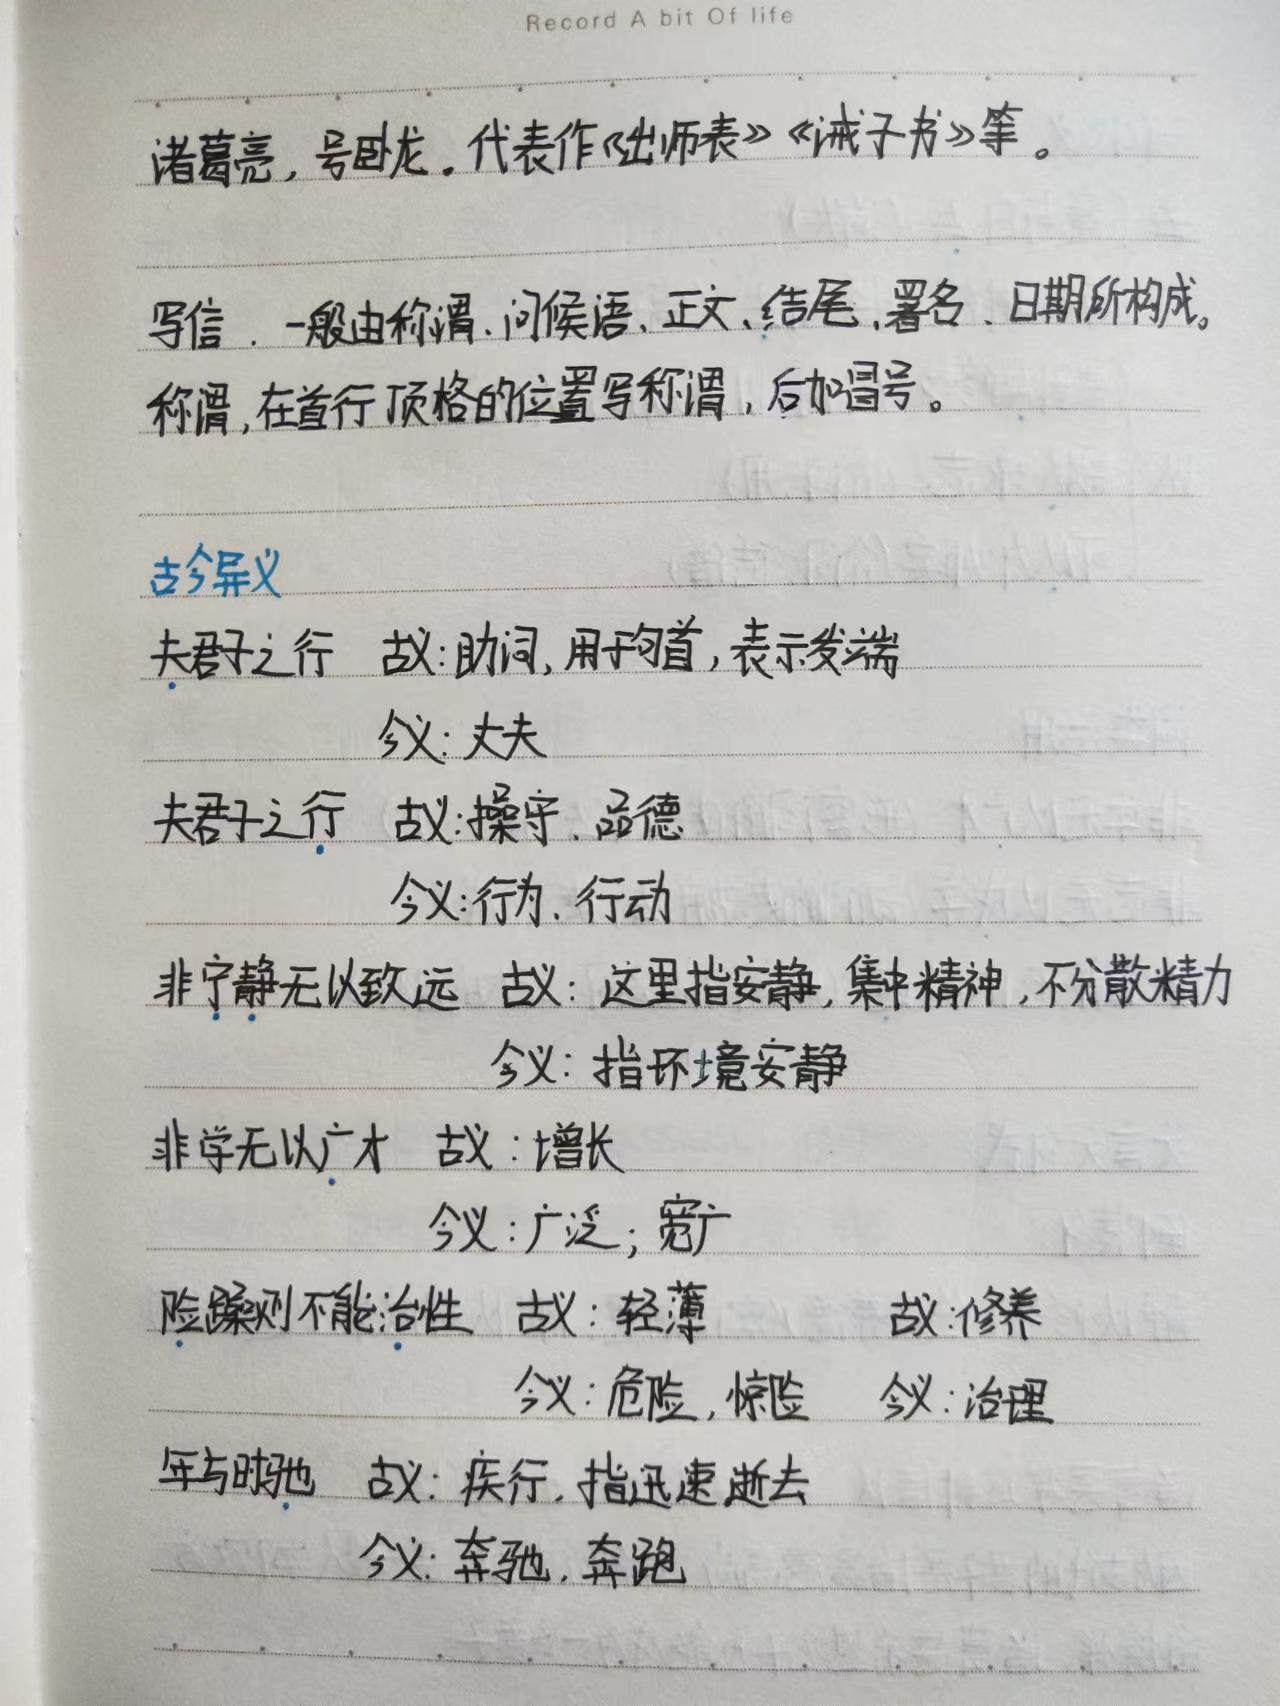 Record A bit Of life
诸葛亮，号卧龙。代表作《出师表》《诫子书》等。
写信、一般由称谓、问候语、正文、结尾、署名、日期所构成。
称谓，在首行顶格的位置写称谓，后加冒号。
古今异义
夫君子之行 古义：助词，用于句首，表示发端
今义：丈夫
夫君子之行 古义：操守、品德
今义：行为、行动
非宁静无以致远 古义：这里指安静，集中精神，不分散精力
今义：指环境安静
非学无以广才 古义：增长
今义：广泛；宽广
险躁则不能治性 古义：轻薄 古义：修养
今义：危险，惊险 今义：治理
年与时驰 古义：疾行，指迅速逝去
今义：奔驰，奔跑